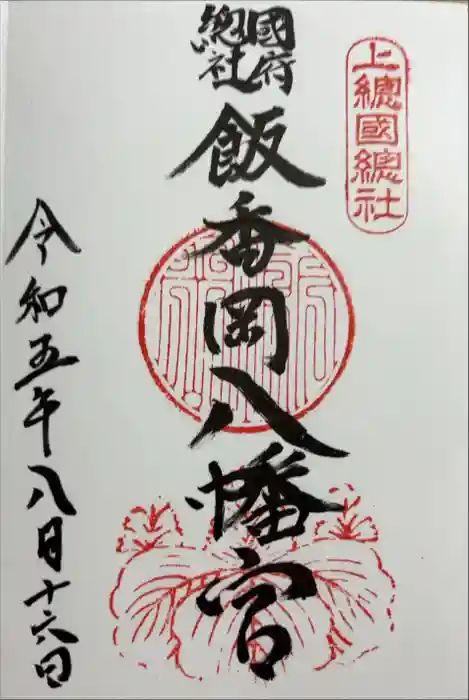 上總國總社
國府
總社
飯香岡八幡宮
令和五年八月十六日